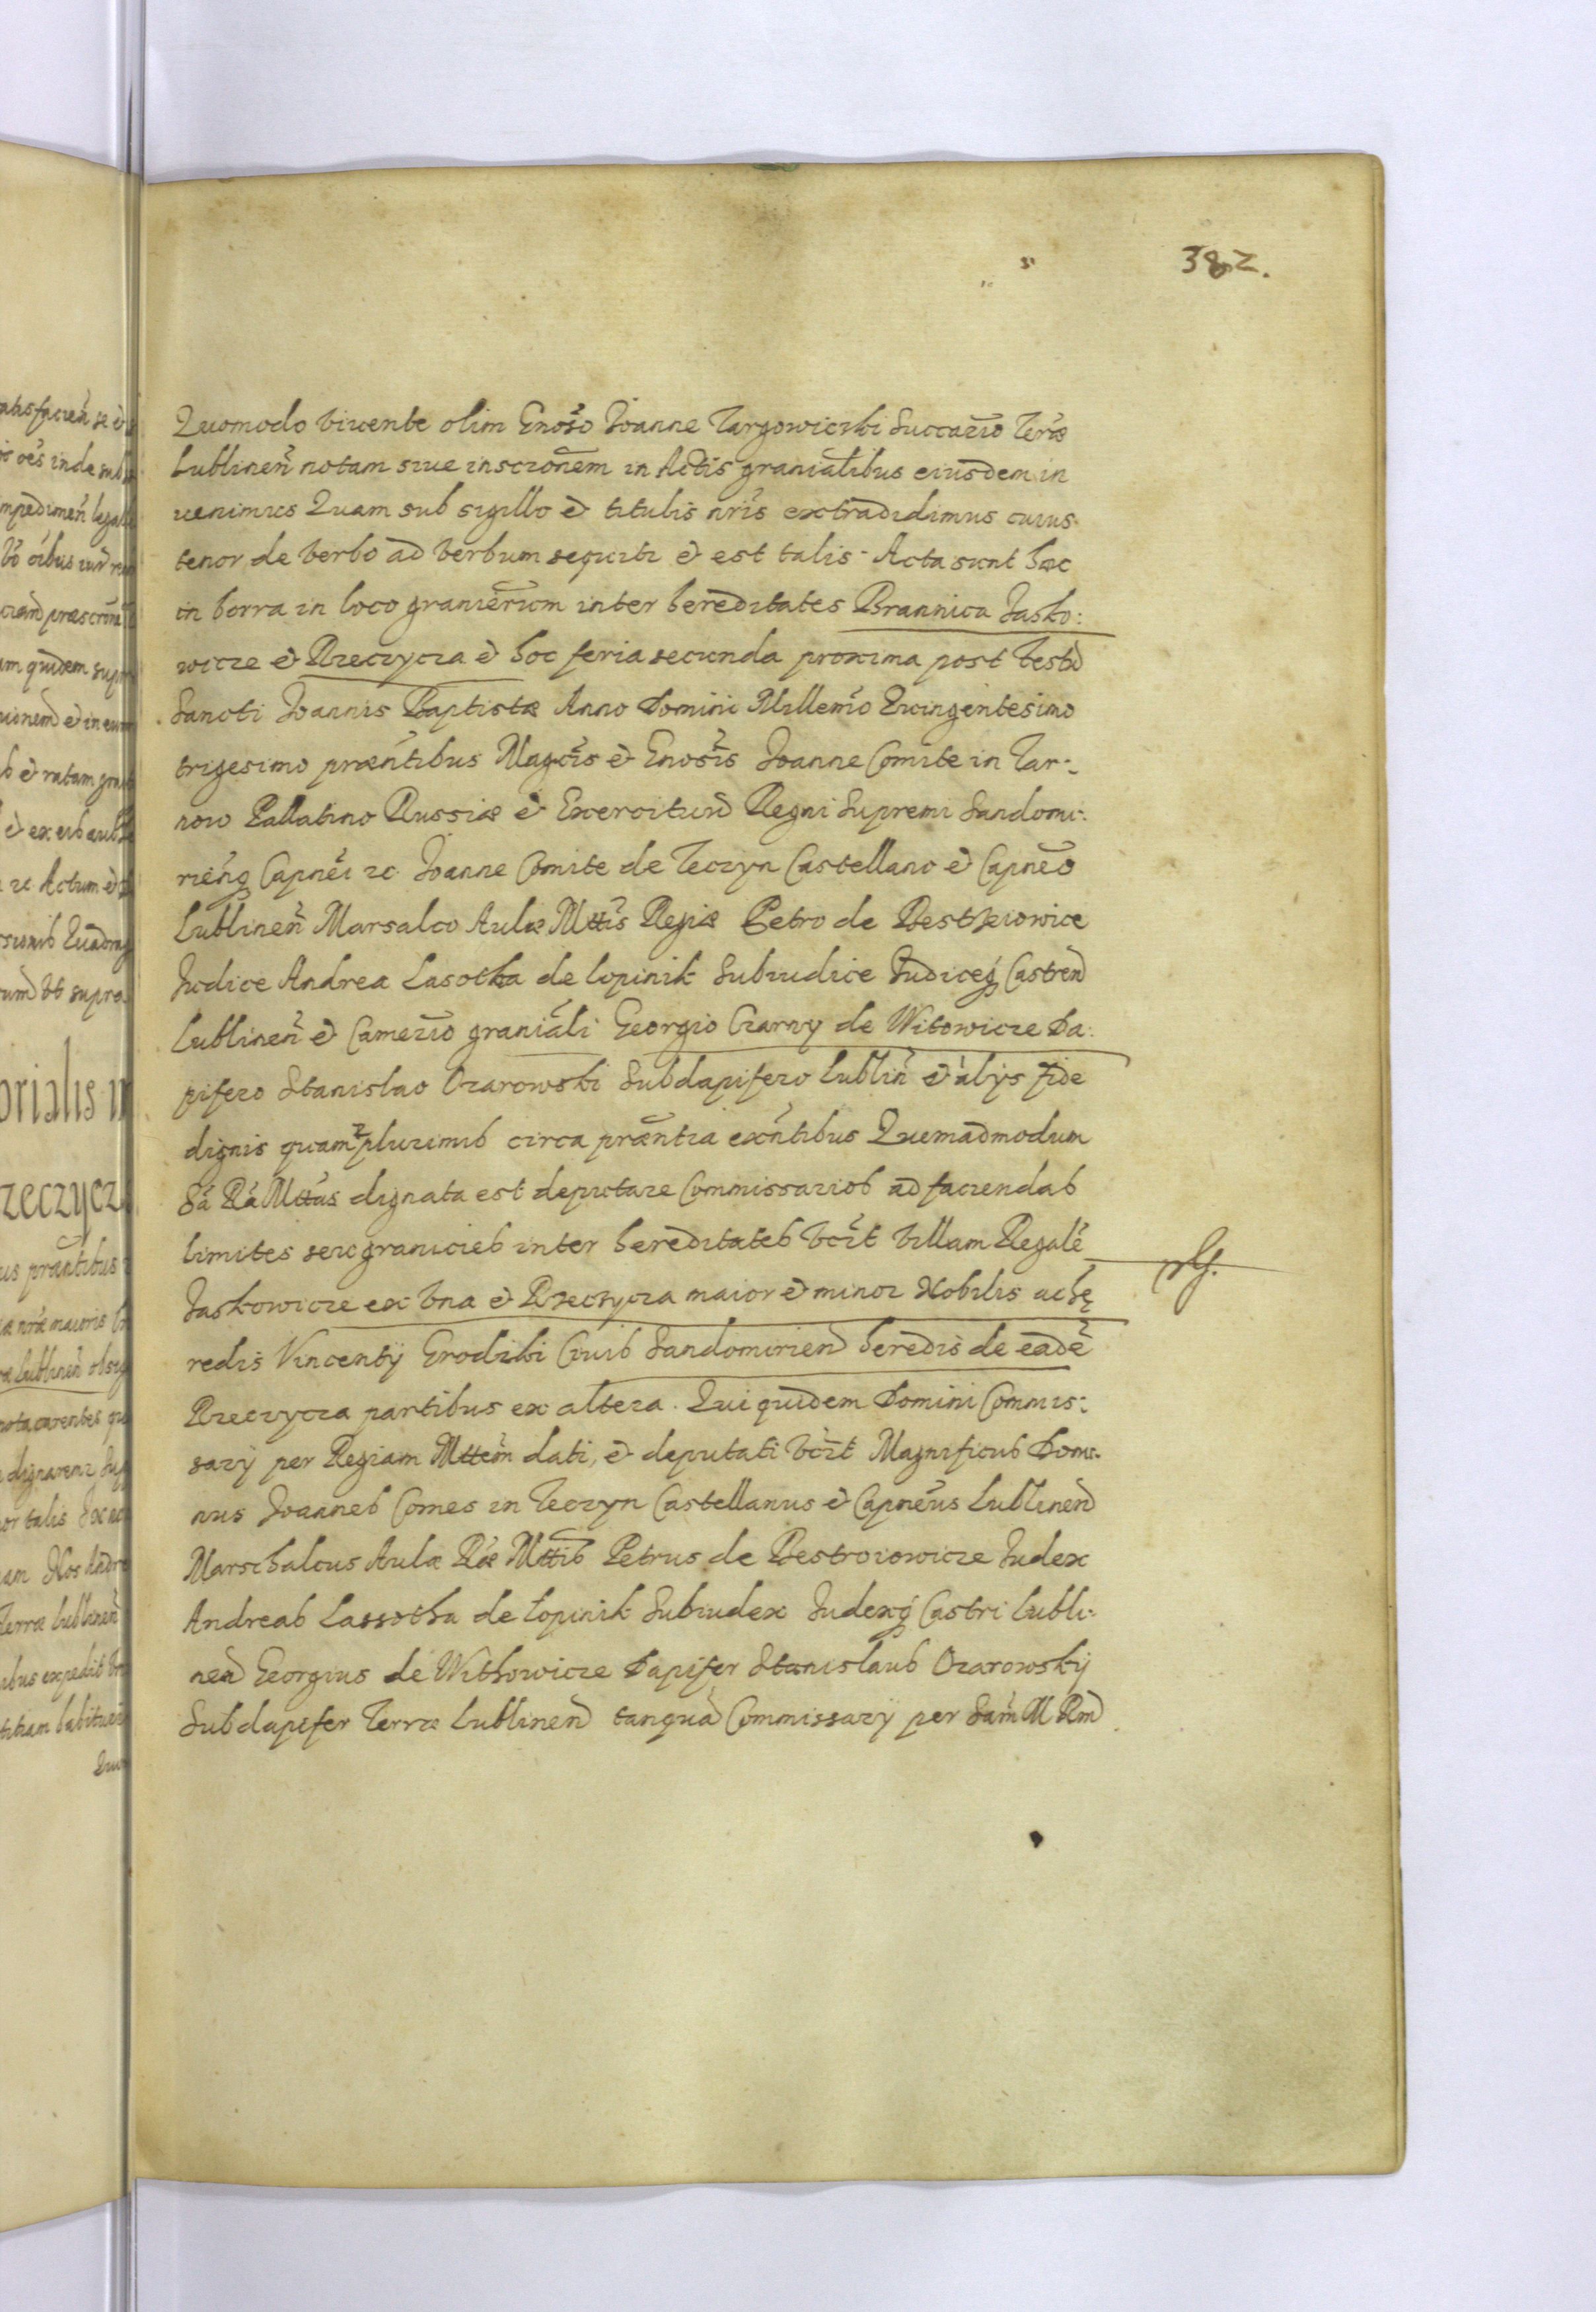 382.
Quomodo viuente olim Gnoso Joanne Targowieski Succario Terræ
Lublinen notam siue inscrōnem in Actis granialibus eiusdem in
uenimus Quam sub sigillo et titulis nris extradidimus cuius
tenor de verbo ad verbum sequitr et est talis. Acta sunt hæc
in borra in loco granierum inter hereditates Brannica Jasko:
wicze et Rzeczycza et hoc feria secunda proxima post festū
Sancti Joannis Baptistæ Anno Domini Millemo Quingentesimo
trigesimo præntibus Magcis et Gnosis Joanne Comite in Tar-
now Pallatino Russiæ et Exercituū Regni Supremi Sandomi-
rieng Capnei etc Joanne Comite de Teczyn Castellano et Capneo
Lublinen Marsalco Aulæ Mttis Regiæ Petro de Bestrzeiowice
Judice Andrea Lasotha de Lopinik Subiudice Judiceq Castren
Lublinen et Camerio graniali Georgio Czarny de Witowicze Da-
pifero Stanislao Ozarowski Subdapifero Lublin et alijs fide
dignis quamplurimis circa præntia exntibus Quemadmodum
Sa Ra Mttas dignata est deputare Commissarios ad faciendas
limites seu granicies inter hereditates vczt villam Regalē
Jaskowicze ex vna et Rzeczycza maior et minor Nobilis ac hę
redis Vincentij Grodzki Ciuis Sandomirien heredis de eadē
Rzeczycza partibus ex altera. Qui quidem Domini Commis:
sarij per Regiam Mttem dati, et deputati vczt Magnificus Domi-
nus Joannes Comes in Teczyn Castellanus et Capneus Lublinen
Marschalcus Aulæ Ræ Mttis Petrus de Bestrziowicze Judex
Andreas Lassotha de Lopinik Subiudex Judexq Castri Lubli-
nen Georgius de Withowicze Dapifer Stanislaus Ozarowskij
Subdapifer Terræ Lublinen tanquā Commissarij per Sam M Rm